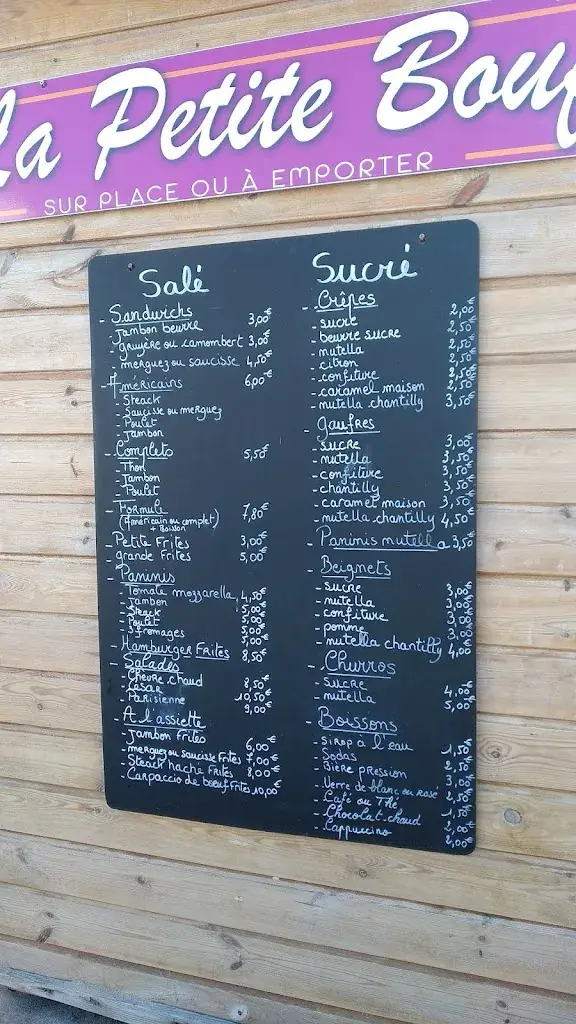 La Petite Bouf
SUR PLACE OU À EMPORTER
Salé
- Sandwichs
- Jambon beurre 3,00€
- gruyère ou camembert 3,00€
- merguez ou saucisse 4,50€
- Américains 6,00€
- Steack
- Saucisse ou merguez
- Poulet
- Jambon
- Complets 5,50€
- Thon
- Jambon
- Poulet
- Formule 7,80€
(Américain ou complet)
+ Boisson
- Petite Frites 3,00€
- grande Frites 5,00€
- Paninis
- Tomate mozzarella 4,50€
- Jambon 5,00€
- Steack 5,00€
- Poulet 5,00€
- 3 fromages 5,00€
- Hamburger Frites 8,50€
- Salades
- Chèvre chaud 8,50€
- César 10,50€
- Parisienne 9,00€
- A l'assiette
- Jambon Frites 6,00€
- merguez ou saucisse Frites 7,00€
- Steack haché Frites 8,00€
- Carpaccio de boeuf Frites 10,00€
Sucré
- Crêpes
- sucre 2,00€
- beurre sucre 2,50€
- nutella 2,50€
- citron 2,50€
- confiture 2,50€
- caramel maison 2,50€
- nutella chantilly 3,50€
- gaufres
- sucre 3,00€
- nutella 3,50€
- confiture 3,50€
- chantilly 3,50€
- caramel maison 3,50€
- nutella chantilly 4,50€
- Paninis nutella 3,50€
- Beignets
- sucre 3,00€
- nutella 3,00€
- confiture 3,00€
- pomme 3,00€
- nutella chantilly 4,00€
- Churros
- sucre 4,00€
- nutella 5,00€
- Boissons
- sirop à l'eau 1,50€
- Sodas 2,50€
- Bière pression 3,00€
- Verre de blanc ou rosé 2,50€
- Café ou Thé 1,50€
- Chocolat chaud 2,00€
- Cappuccino 2,00€